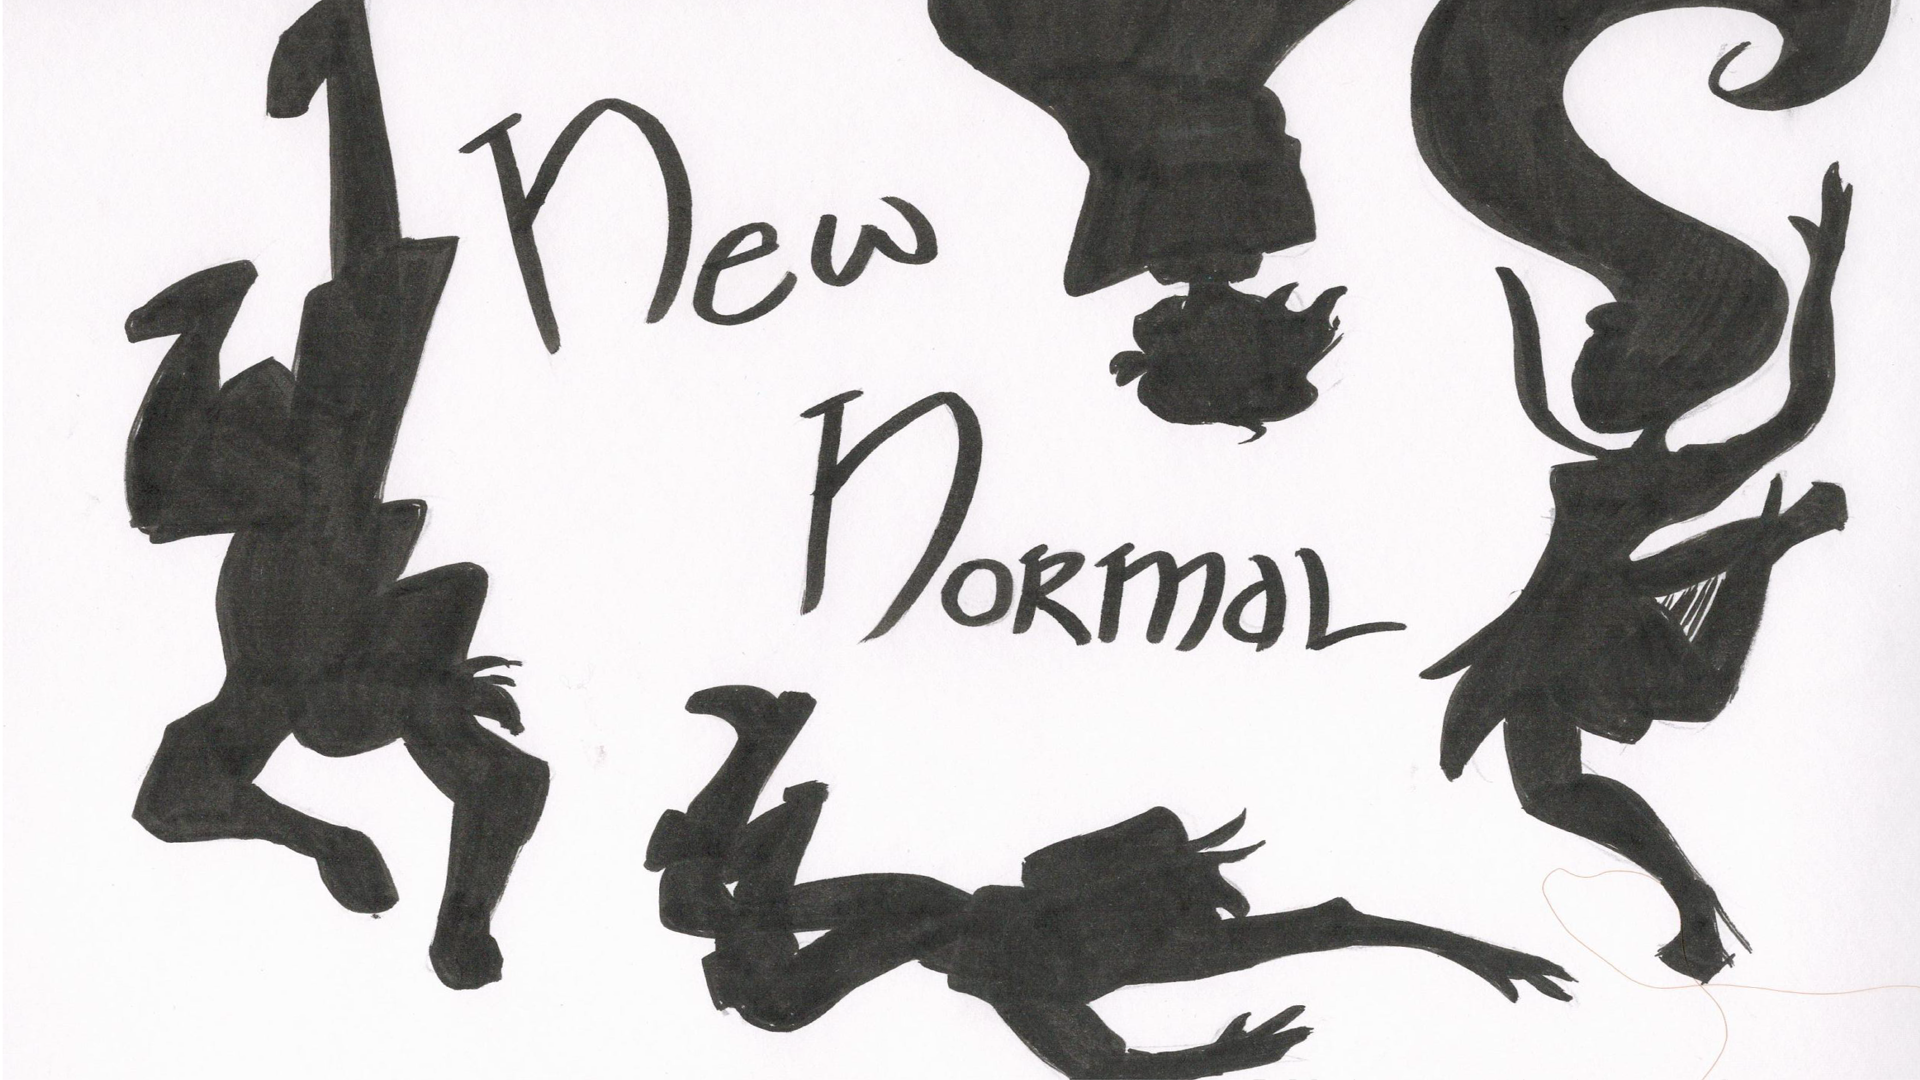 New
NORMAL